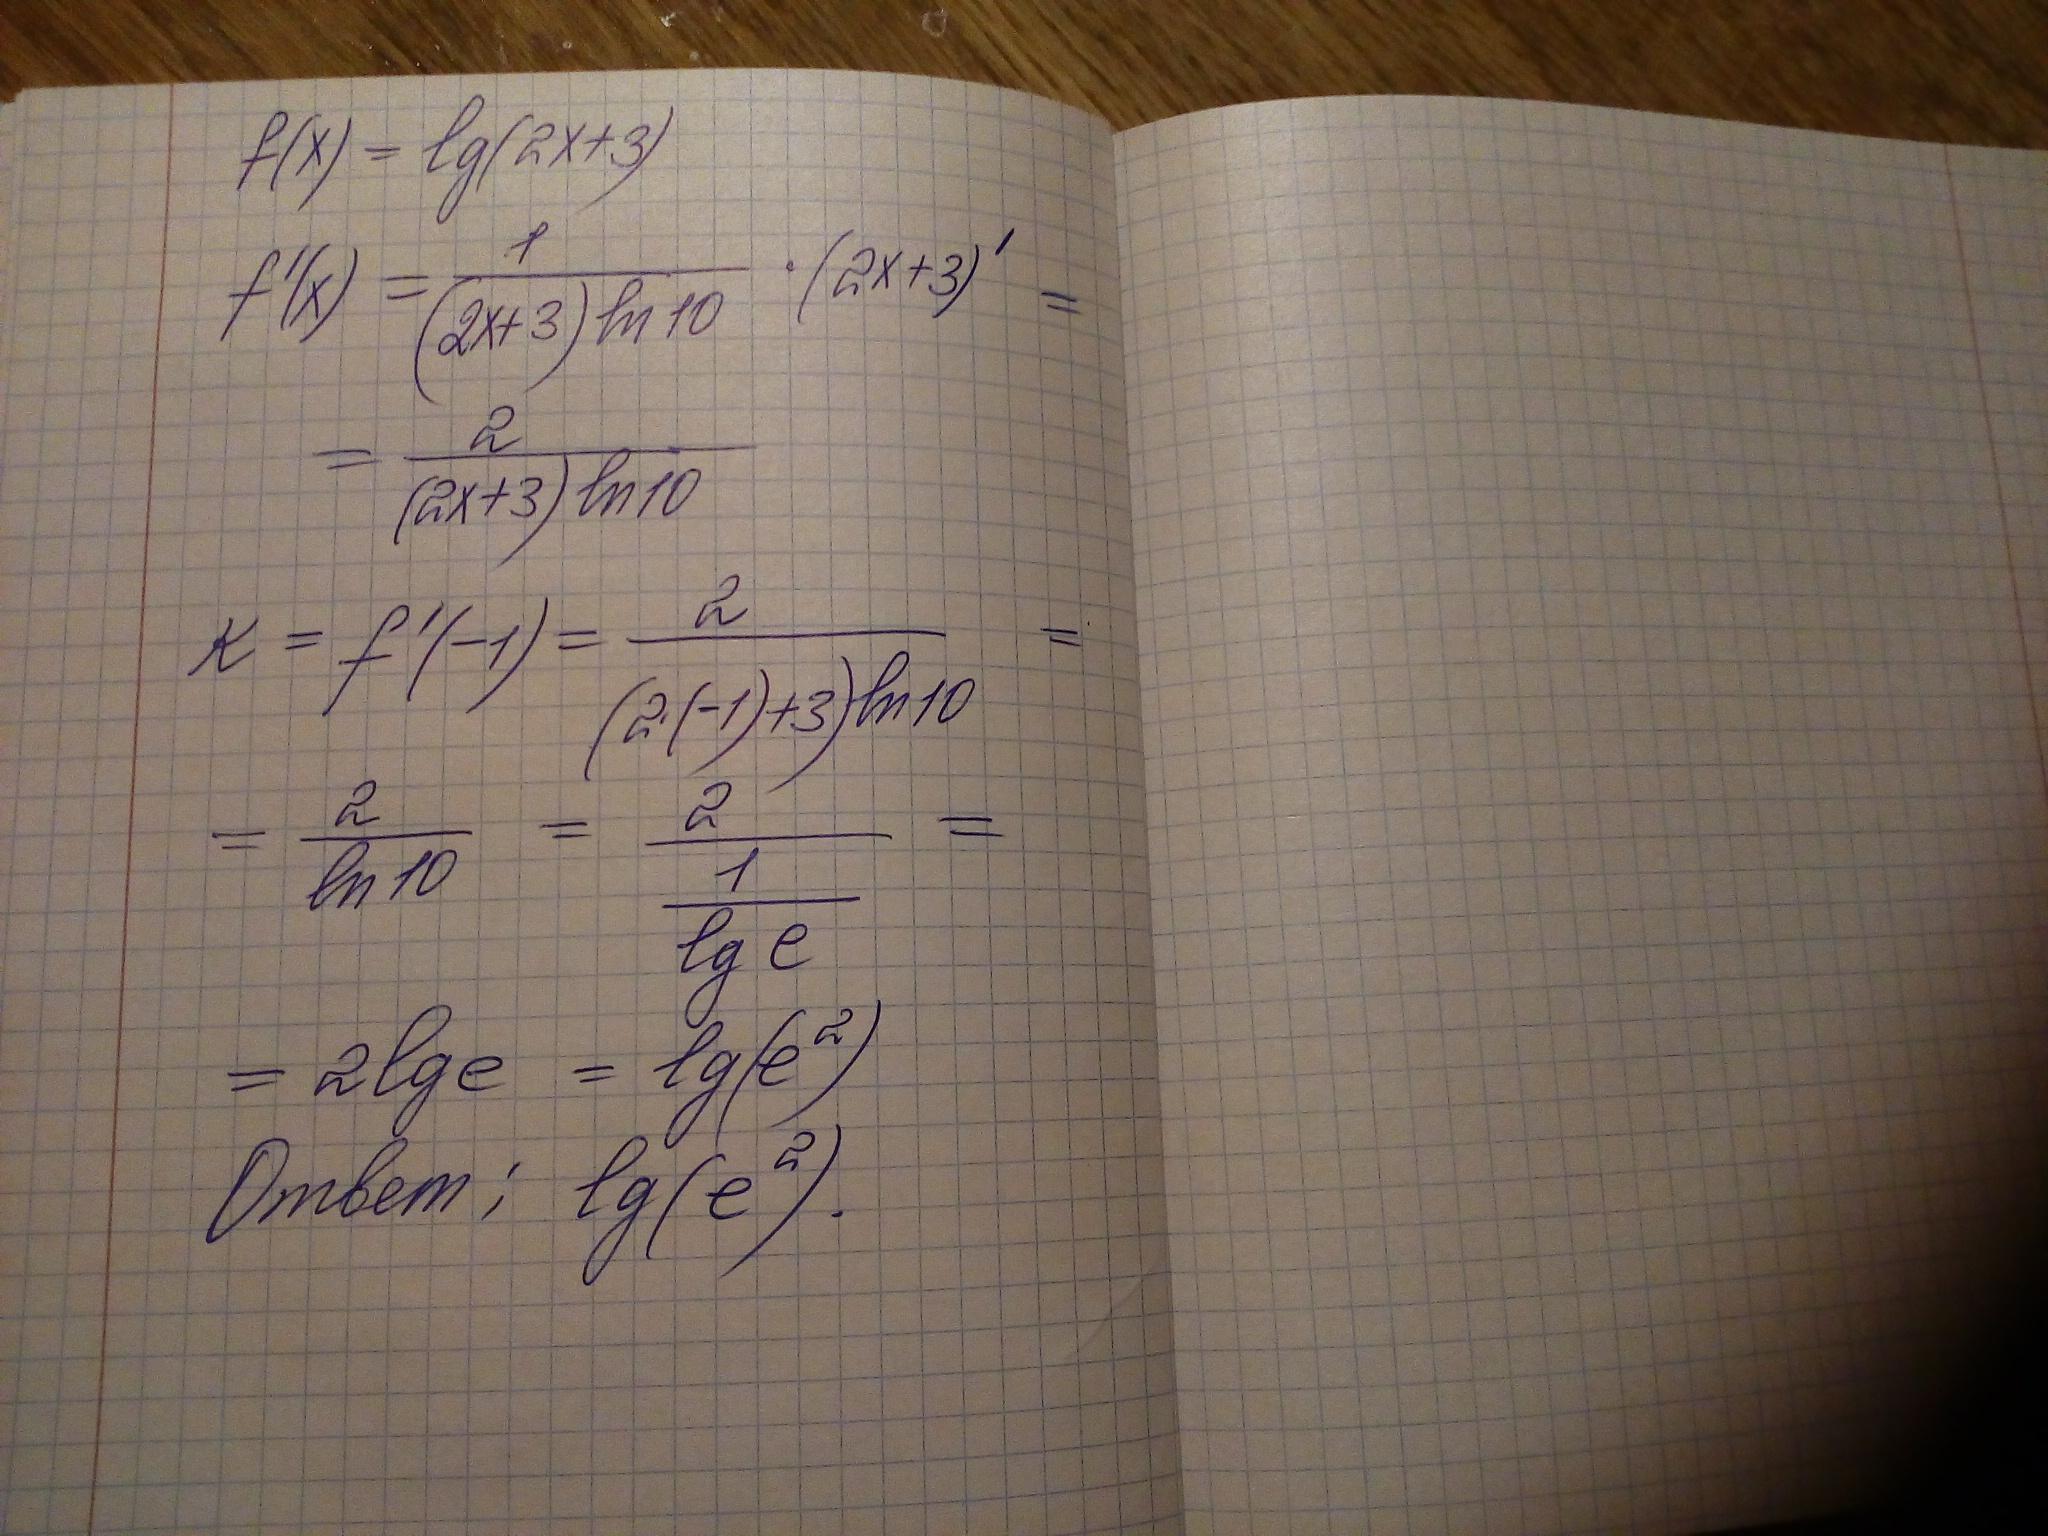 f(x) = lg(2x+3)
f'(x) = 1/((2x+3) ln 10) · (2x+3)' =
= 2/((2x+3) ln 10)
K = f'(-1) = 2/((2·(-1)+3) ln 10) =
= 2/(ln 10) = 2/(1/(lg e)) =
= 2lg e = lg(e²)
Ответ: lg(e²).